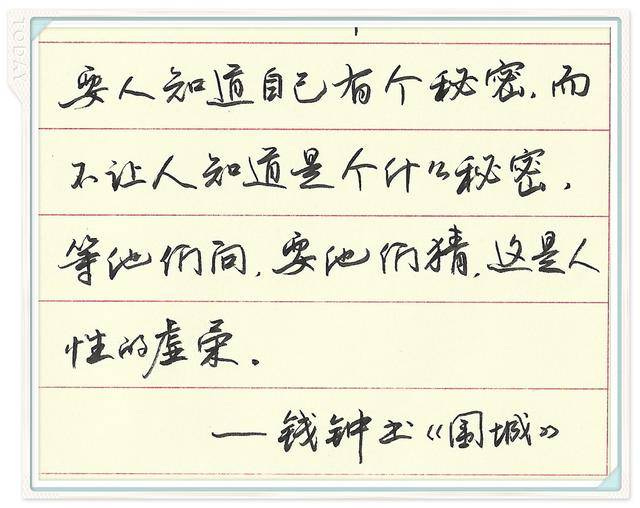 要人知道自己有个秘密,而
不让人知道是个什么秘密,
等他们问,要他们猜,这是人
性的虚荣。
——钱钟书《围城》
TODAY